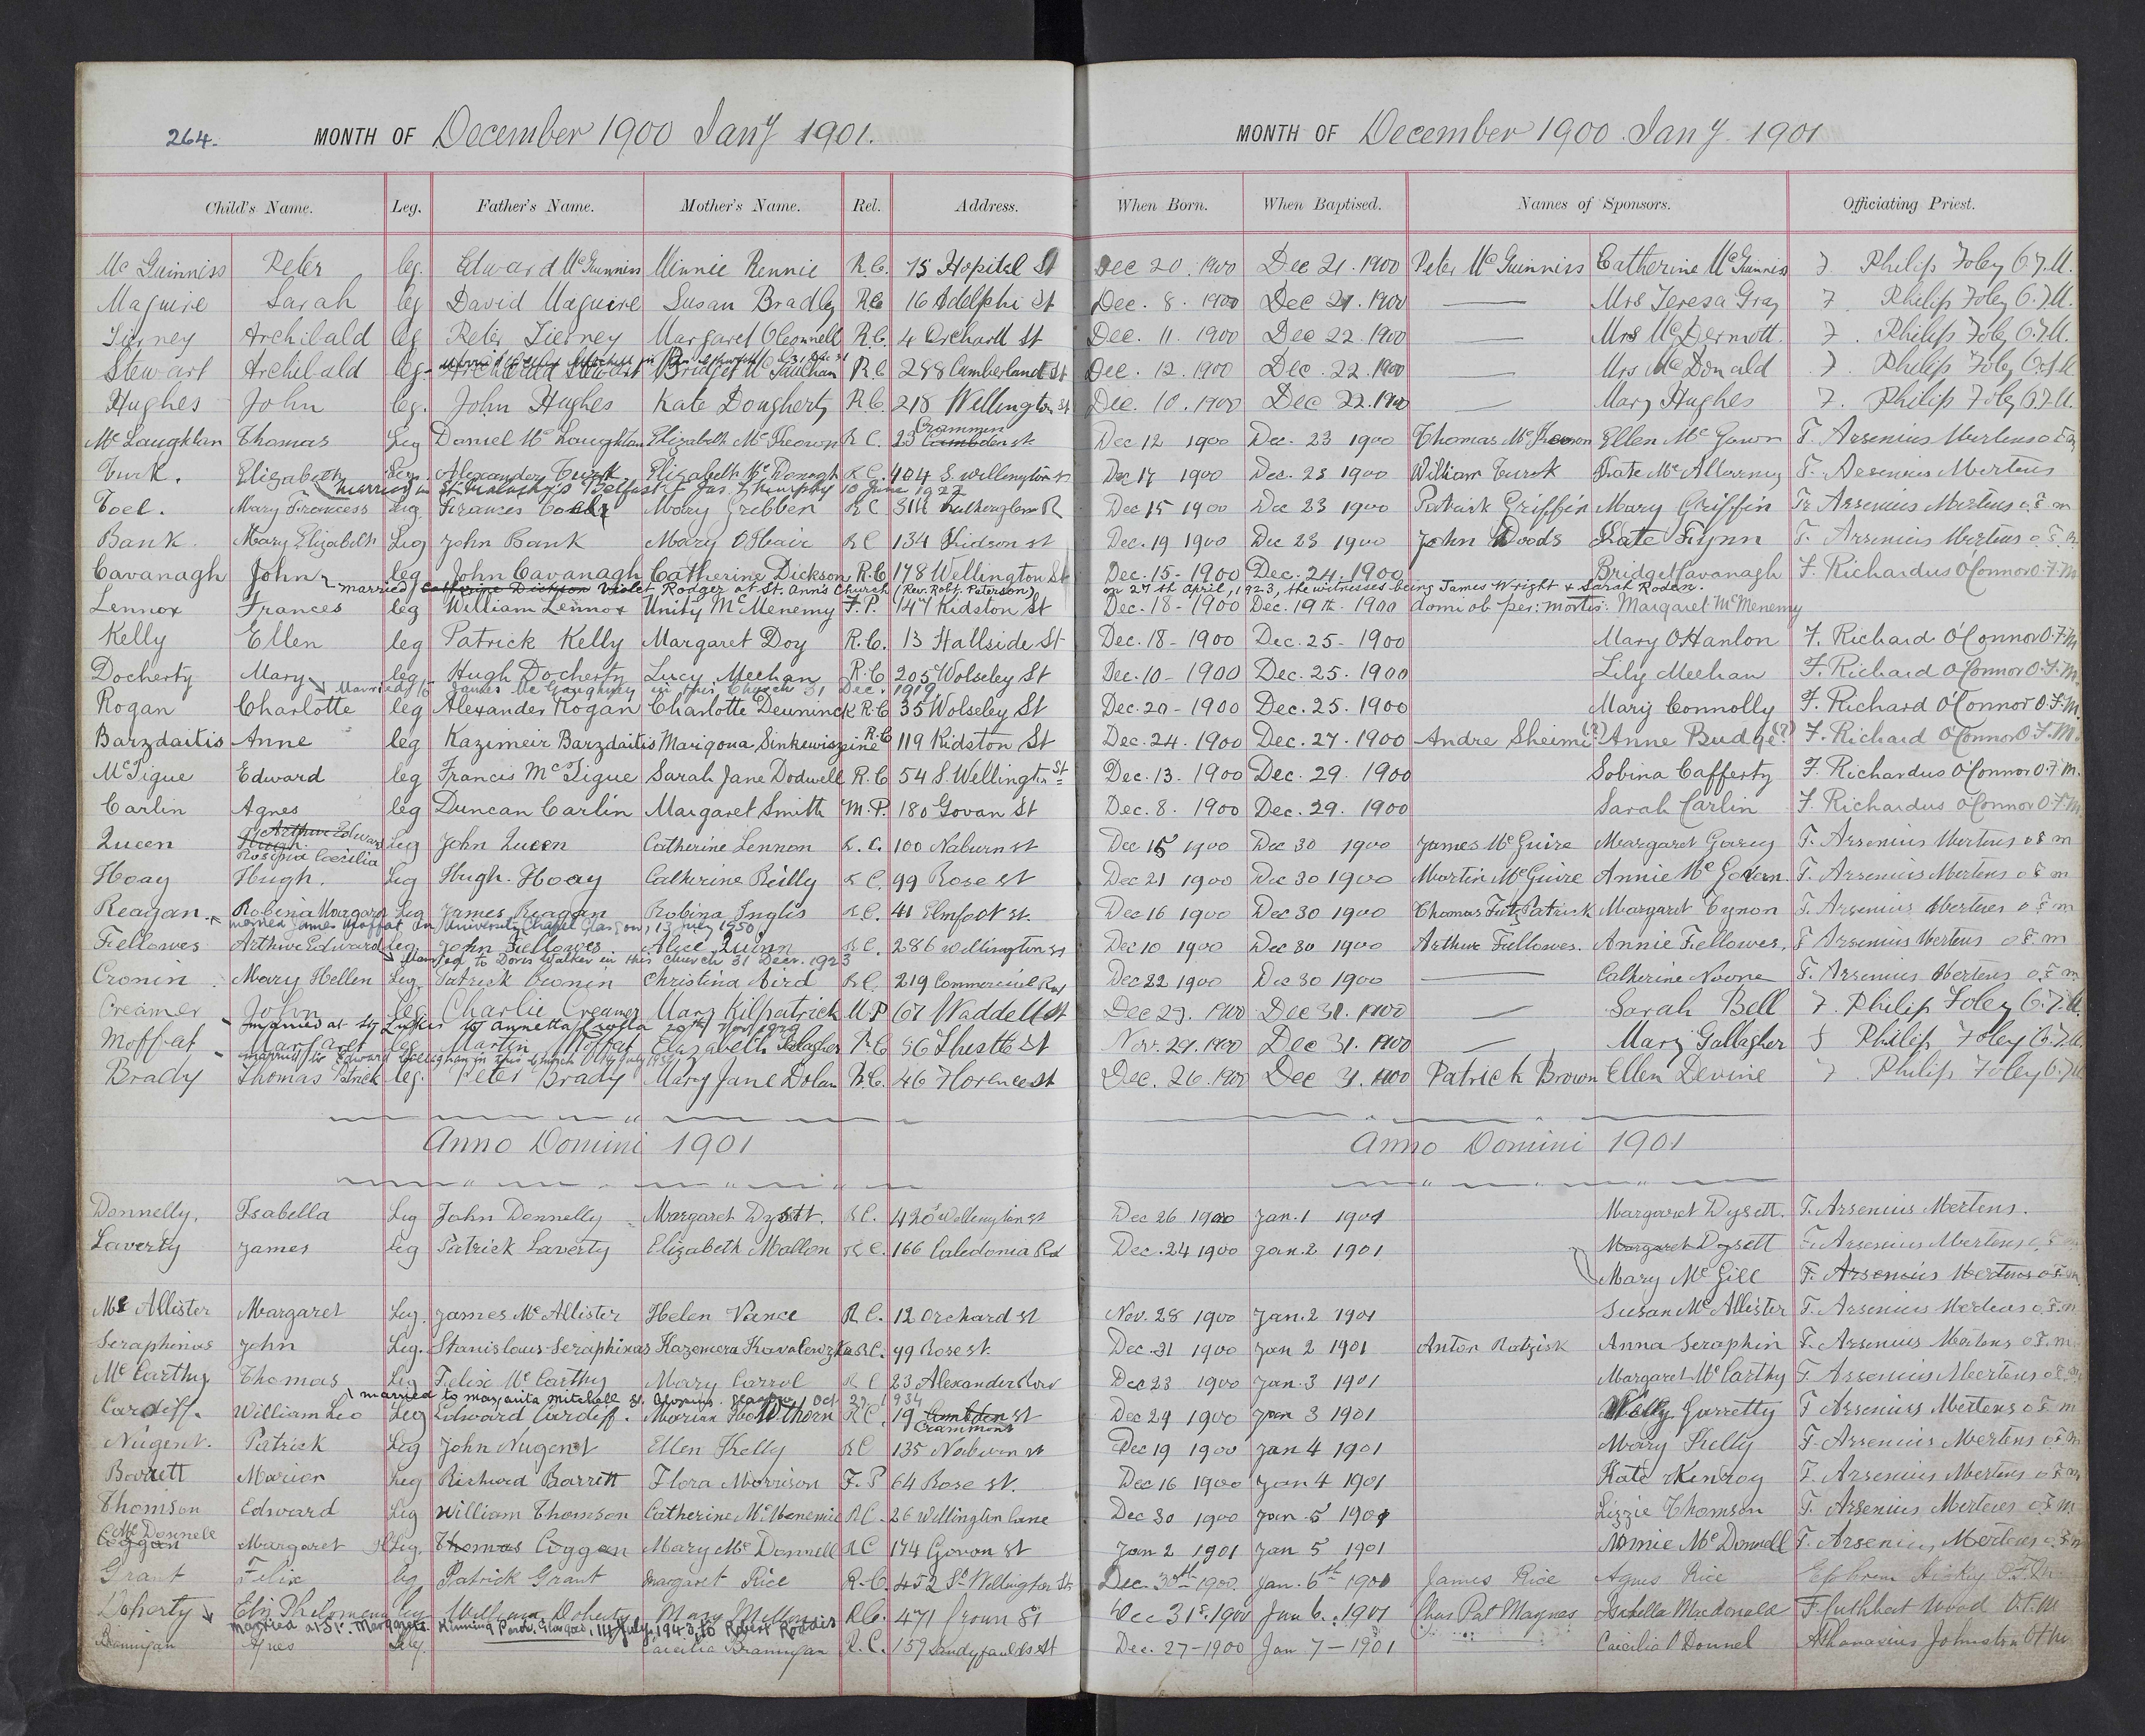 264. MONTH OF December 1900 Jany 1901.
Child's Name. Leg. Father's Name. Mother's Name. Rel. Address.
McGuinniss Peter leg. Edward McGuinniss Minnie Rennie R.C. 75 Hospital St
Maguire Sarah leg David Maguire Susan Bradley RC 16 Adelphi St
Tierney Archibald leg Peter Tierney Margaret O'Connell R.C. 4 Orchard St
Stewart Archibald leg. Archibald Stewart Bridget R.C 288 Cumberland St
Hughes John leg. John Hughes Kate Dougherty R.C. 218 Wellington St
Crammon
McLaughlan Thomas Leg Daniel McLaughlan Elizabeth McKeown R C. 23 Cambden st
Turk. Elizabeth Leg. Alexander Turk Elizabeth McDonogh R.C. 404 S. Wellington st
married in St Malachy's Belfast Jas. Murphy 10 June 1922
Toel. Mary Francess Leg. Frances Mary Gribben R C Rutherglen R
Bank. Mary Elizabeth Leg John Bank Mary O'Hair R C 134 Kidson st
Cavanagh John leg John Cavanagh Catherine Dickson R.C. 178 Wellington St
married Catherine Dickson Violet Rodger at St. Ann's Church (Rev. Robt. Paterson)
Lennox Frances leg William Lennox Unity McMenemy F.P. 147 Kidston St
Kelly Ellen leg Patrick Kelly Margaret Doy R.C. 13 Hallside St
Docherty Mary leg Hugh Docherty Lucy Meehan R.C 205 Wolseley St
Married to James McGaughney in this Church 31 Dec. 1919
Rogan Charlotte leg Alexander Rogan Charlotte Deuninck R.C 35 Wolseley St
Barzdaitis Anne leg Kazimeir Barzdaitis Marigona Sinkewiszeine R.C 119 Kidston St
McTigue Edward leg Francis McTigue Sarah Jane Dodwell R.C 54 S. Wellington St
Carlin Agnes leg Duncan Carlin Margaret Smith M.P. 180 Govan St
Arthur Edward
Queen Hugh. Leg John Queen Catherine Lennon R.C. 100 Naburn st
Rosina Caecilia
Hoay Hugh. Leg Hugh Hoay Catherine Reilly R C. 99 Rose st
Reagan. Robina Margaret Leg James Reagan Robina Inglis R.C. 41 Elmfoot st.
married James Moffat in University Chapel Glasgow, 13 July 1950
Fellowes Arthur Edward leg. John Fellowes Alice Quinn R.C. 286 Wellington st
Married to Doris Walker in this Church 31 Decr. 1923
Cronin Mary Hellen Leg. Patrick Cronin Christina Aird R.C. 219 Commercial Rd
Creamer John leg Charlie Creamer Mary Kilpatrick U.P 67 Waddell St
married at St Lukes to Annetta Crolla 20th Nov 1929
Moffat Margaret leg Martin Moffat Elizabeth Gallagher R.C 56 Thistle St
married to Edward Callaghan in this Church
Brady Thomas Patrick leg. Peter Brady Mary Jane Dolan R.C. 46 Florence St
Anno Domini 1901
Donnelly, Isabella Leg John Donnelly Margaret Dysett. R.C. 420 Wellington st
Laverty James leg Patrick Laverty Elizabeth Mallon R.C. 166 Caledonia Rd
McAllister Margaret Leg. James McAllister Helen Vance R.C. 12 Orchard st
Seraphinas John Leg. Stanislaus Seraphinas Kazemera Kavalewzka R.C. 99 Rose st.
McCarthy Thomas Leg Felix McCarthy Mary Carrol R C 23 Alexander Row
married to Margarita Mitchell St. Aloysius, Glasgow, Oct 27, 1934
Cardiff. William Leo Leg Edward Cardiff. Marian Hawthorn R C. 19 Cambden st
Crammond
Nugent. Patrick Leg John Nugent Ellen Kelly R C 135 Naburn st
Barrett Marion Leg Richard Barrett Flora Morrison F.P 64 Rose st.
Thomson Edward Leg William Thomson Catherine McMenemie R.C. 26 Wellington Lane
McDonnell
Coggan Margaret Leg. Thomas Coggan Mary McDonnell R C 174 Govan st
Grant Felix leg Patrick Grant Margaret Rice R.C. 452 St Wellington St.
Doherty Eliz Philomena leg William Doherty Mary R.C. 471 Govan St
married at St. Margarets Kinning Park, Glasgow, 11 July, 1943 to Robert
Brannigan Agnes Leg. Caecilia Brannigan R.C. 159 Sandyfaulds St
MONTH OF December 1900. Jany 1901
When Born. When Baptised. Names of Sponsors. Officiating Priest.
Dec 20. 1900 Dec 21. 1900 Peter McGuinniss Catherine McGuinniss F. Philip Foley O.F.M.
Dec. 8. 1900 Dec 21. 1900 Mrs Teresa Gray F. Philip Foley O.F.M.
Dec. 11. 1900 Dec 22. 1900 Mrs McDermott. F. Philip Foley O.F.M.
Dec. 12. 1900 Dec. 22. 1900 Mrs McDonald F. Philip Foley O.F.M
Dec. 10. 1900 Dec 22. 1900 Mary Hughes F. Philip Foley O.F.M.
Dec 12 1900 Dec. 23 1900 Thomas McKeown Ellen McGawn F. Arsenius Mertens O.F.M
Dec 17 1900 Dec. 23 1900 William Turk Kate McAllorney F. Arsenius Mertens
Dec 15 1900 Dec 23 1900 Patrick Griffin Mary Griffin Fr Arsenius Mertens o.F.m
Dec. 19 1900 Dec 23 1900 John Woods Kate Flynn F. Arsenius Mertens o.F.m
Dec. 15- 1900 Dec. 24, 1900 Bridget Cavanagh F. Richardus O'Connor O.F.M
on 27th April, 1923, the witnesses being James Wright & Sarah Roden.
Dec. 18- 1900 Dec. 19th. 1900 domi ob per: mortis. Margaret McMenemy
Dec. 18- 1900 Dec. 25- 1900 Mary O'Hanlon F. Richard O'Connor O.F.M
Dec. 10- 1900 Dec. 25. 1900 Lily Meehan F. Richard O'Connor O.F.M.
Dec. 20- 1900 Dec. 25. 1900 Mary Connolly F. Richard O'Connor O.F.M.
Dec. 24. 1900 Dec. 27. 1900 Andre Sheimi(?) Anne Budge(?) F. Richard O'Connor O.F.M.
Dec. 13- 1900 Dec. 29. 1900 Sobina Cafferty F. Richardus O'Connor O.F.M.
Dec. 8. 1900 Dec. 29. 1900 Sarah Carlin F. Richardus O'Connor O.F.M.
Dec 15 1900 Dec 30 1900 James McGuire Margaret F. Arsenius Mertens o F m
Dec 21 1900 Dec 30 1900 Martin McGuire Annie McGovern F. Arsenius Mertens o F m
Dec 16 1900 Dec 30 1900 Thomas Fitz Patrick Margaret Cynon F. Arsenius Mertens o F m
Dec 10 1900 Dec 30 1900 Arthur Fellowes. Annie Fellowes. F Arsenius Mertens o F m
Dec 22 1900 Dec 30 1900 Catherine Noone F. Arsenius Mertens o.F.m
Dec 27. 1900 Dec 31. 1900 Sarah Bell F. Philip Foley O.F.M.
Nov. 29. 1900 Dec 31. 1900 Mary Gallagher F Philip Foley O.F.M.
Dec. 26. 1900 Dec 31. 1900 Patrick Brown Ellen Devine F. Philip Foley O.F.M
Anno Domini 1901
Dec 26 1900 Jan. 1 1901 Margaret Dysett. F. Arsenius Mertens.
Dec. 24 1900 Jan. 2 1901 Margaret Dysett F. Arsenius Mertens o.F.m
Mary McGill F. Arsenius Mertens o.F.m
Nov. 28 1900 Jan. 2 1901 Susan McAllister F. Arsenius Mertens o.F.m
Dec. 21 1900 Jan 2 1901 Anton Ratzisk Anna Seraphin F. Arsenius Mertens o.F.m
Dec 23 1900 Jan. 3 1901 Margaret McCarthy F. Arsenius Mertens o.F.m
Dec 29 1900 Jan 3 1901 Garretty F Arsenius Mertens o F m
Dec 19 1900 Jan 4 1901 Mary Kelly F. Arsenius Mertens o.F.m
Dec 16 1900 Jan 4 1901 Kate McKenroy F. Arsenius Mertens o.F.m
Dec 30 1900 Jan 5 1901 Lizzie Thomson F. Arsenius Mertens o.F.m.
Jan 2 1901 Jan 5 1901 Minnie McDonnell F. Arsenius Mertens o.F.m
Dec. 30th 1900 Jan. 6th 1901 James Rice Agnes Rice Ephrem Hickey O.F.M
Dec 31st. 1900 Jan 6. 1901 Chas Pat Maynes Isabella Macdonald F. Cuthbert Wood O.F.M
Dec. 27- 1900 Jan 7- 1901 Caecilia O'Donnel Athanasius Johnston O.F.M.